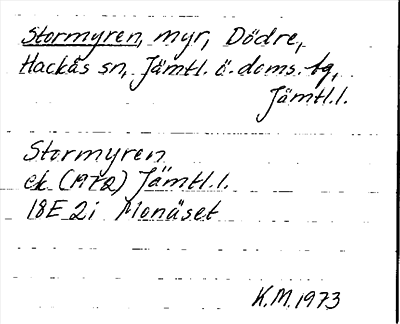 Stormyren, myr, Dödre,
Hackås sn, Jämtl. ö. doms. tg,
Jämtl.l.
Stormyren
ek (1972) Jämtl.l.
18E 2i Monäset
K.M.1973